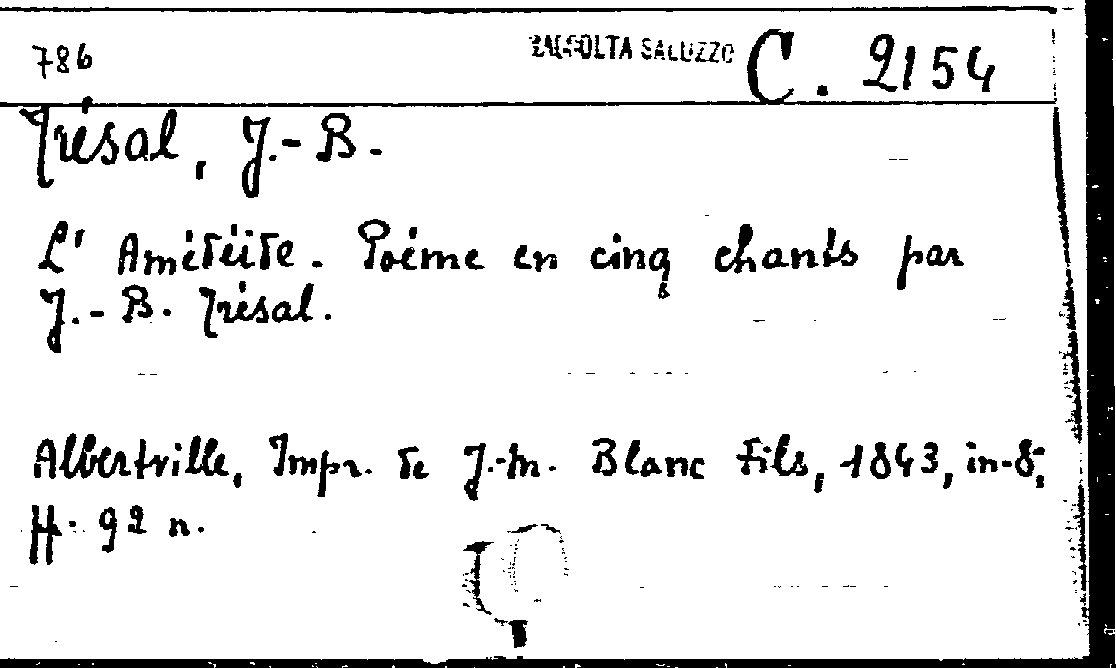 786
RACCOLTA SALUZZO C. 2154
Trésal, J.-B.
L' Amédéide. Poème en cinq chants par
J.-B. Trésal.
Albertville, Impr. de J.-M. Blanc Fils, 1843, in-8°,
ff. 92 n.